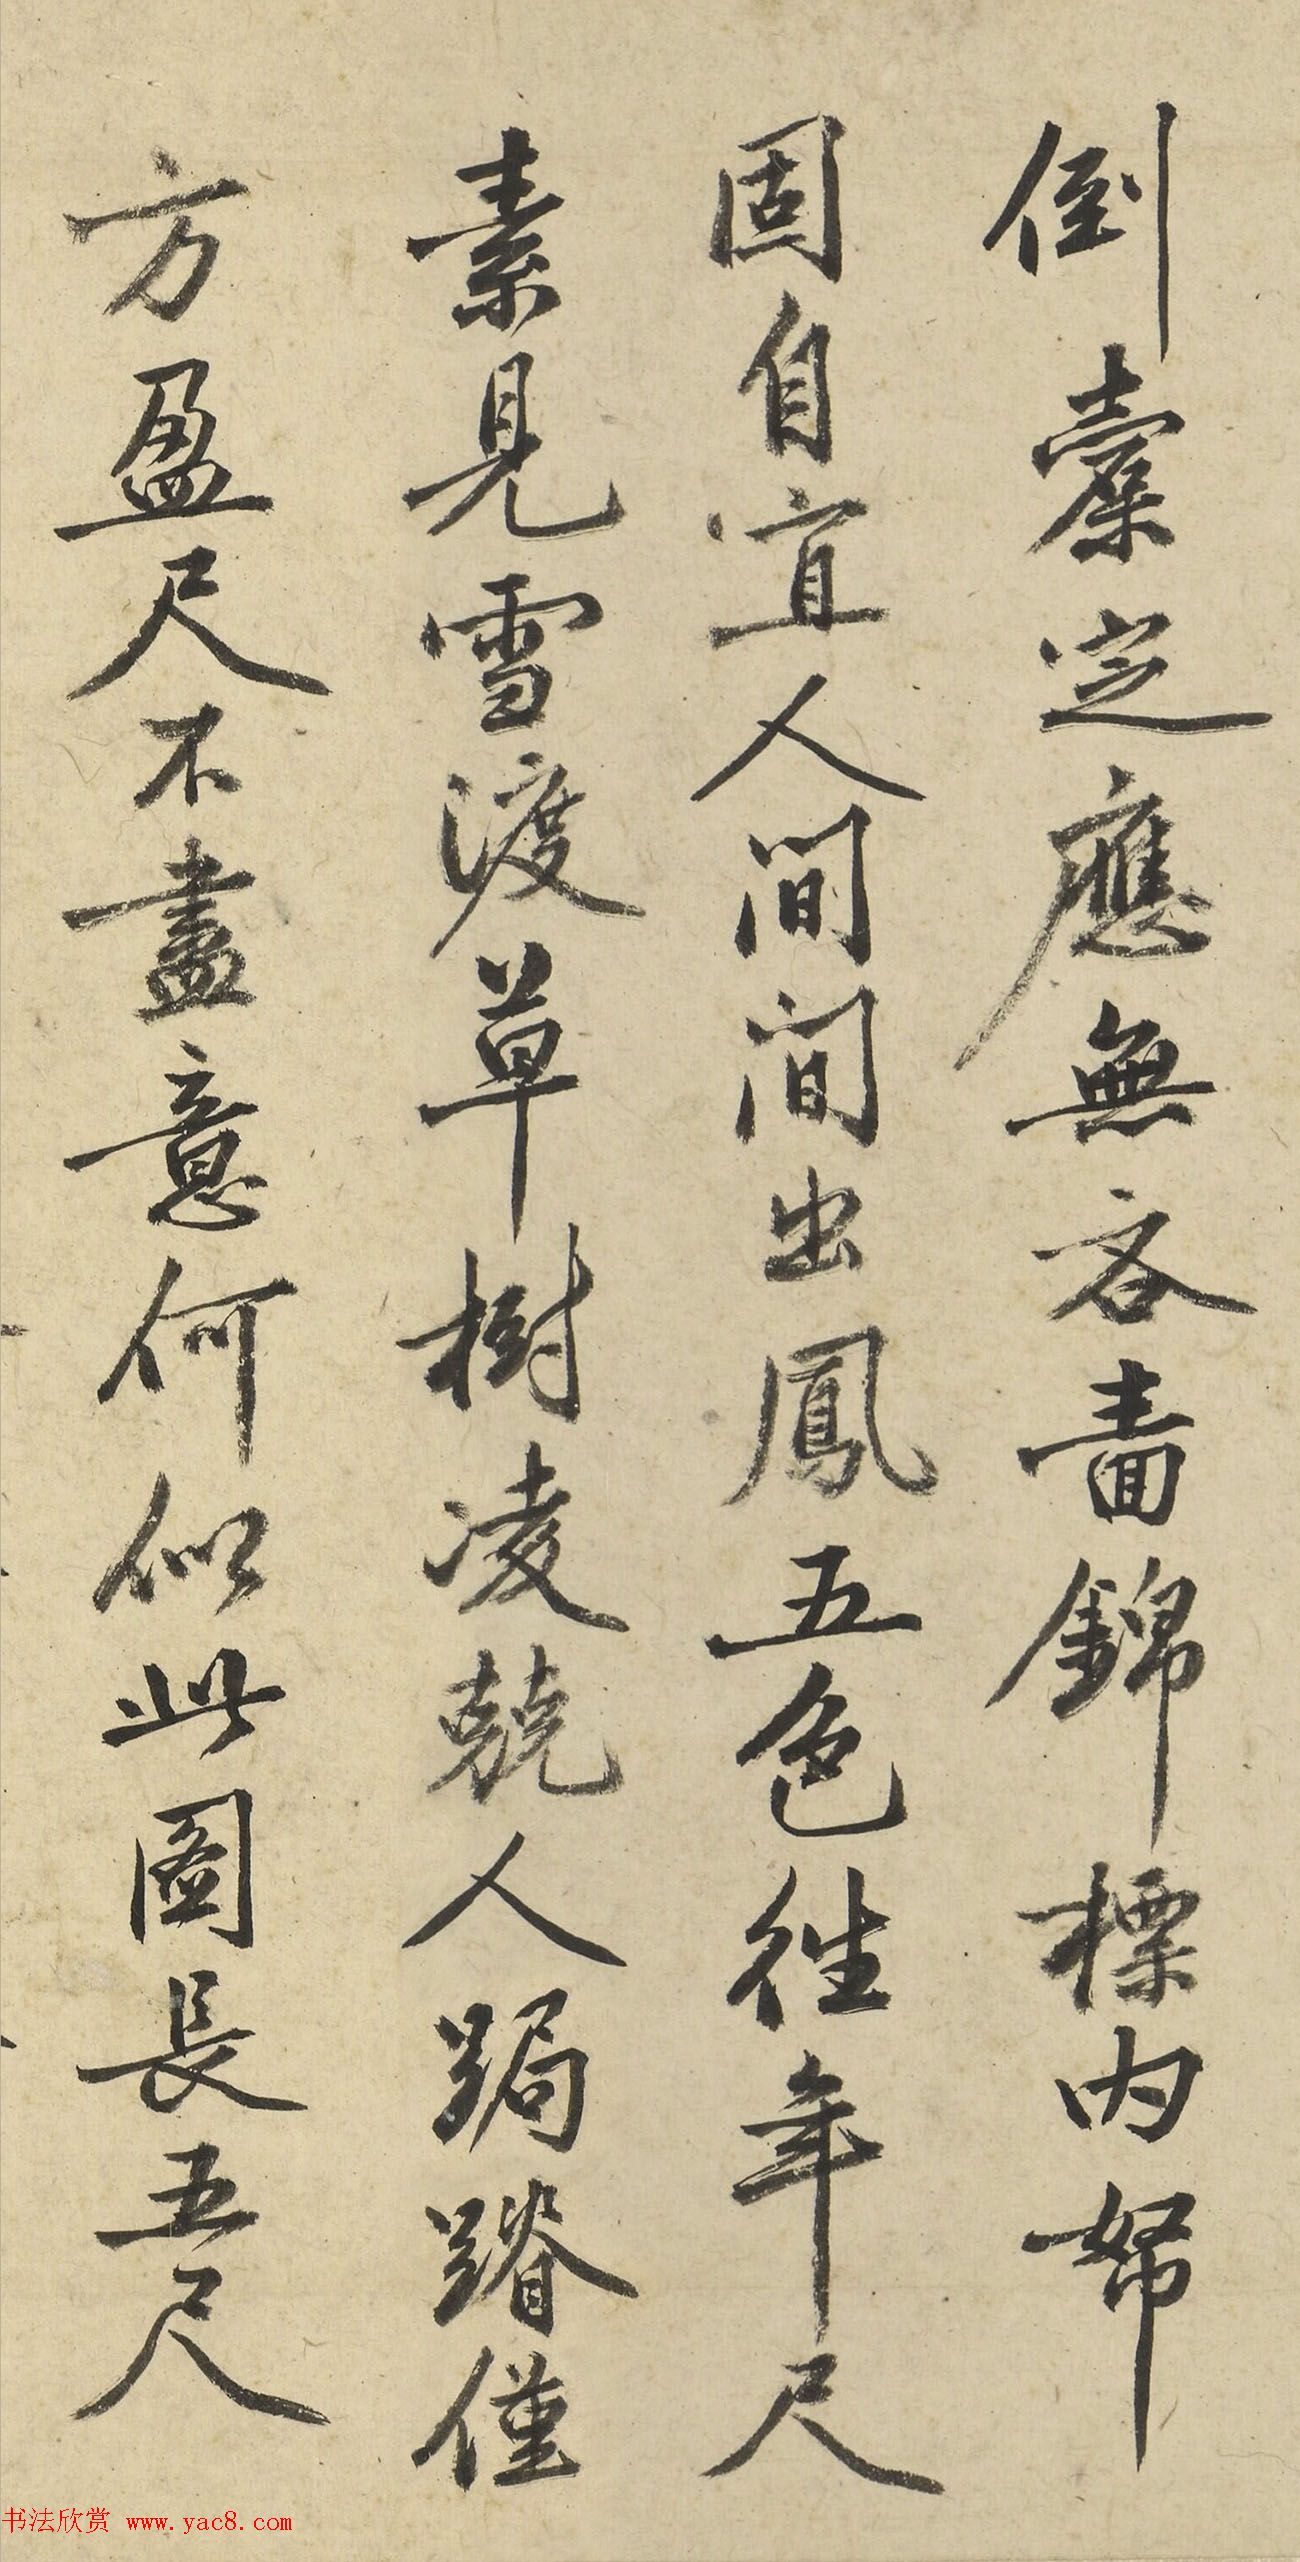 倒橐定應無吝嗇錦標內帑
固自宜人間間出鳳五色往年尺
素見雪渡草樹凌兢人跼蹐僅
方盈尺不盡意何似此圖長五尺
书法欣赏 www.yac8.com